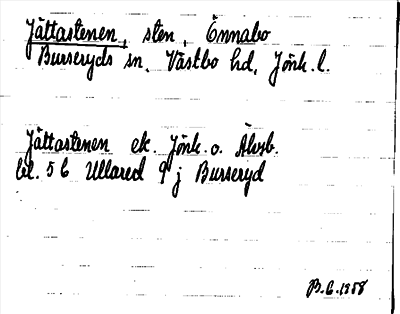 Jättastenen, sten, Ennabo
Burseryds sn. Västbo hd, Jönk. l.
Jättastenen ek. Jönk. o. Älvsb.
bl. 5 C Ullared 9 j Burseryd
B.G. 1958